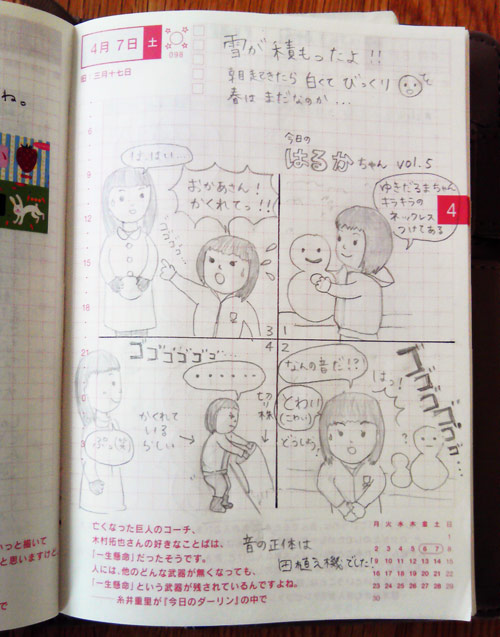 4月 7日 土
098
三月十七日
雪が積もったよ!!
朝起きてきたら 白くて びっくり
春は まだなのか…
ね。
今日の
はるかちゃん vol.5
ゆきだるまちゃん
キラキラの
ネックレス
つけてある
1
4
なんの音だ!?
はっ!
とわい
(こわい)
どうしよう
?
ゴゴゴゴゴゴ…
2
はいはい…
おかあさん!
かくれてっ!!
ゴゴゴゴ…
3
4
ゴゴゴゴゴゴ…
・・・・・・
切り株
かくれて
いる
らしい
ぷっ(笑)
9
12
15
18
21
24
亡くなった巨人のコーチ、
木村拓也さんの好きなことばは、
「一生懸命」だったそうです。
人には、他のどんな武器が無くなっても、
「一生懸命」という武器が残されているんですよね。
糸井重里が『今日のダーリン』の中で
音の正体は
田植え機でした!
月 火 水 木 金 土 日
1
2 3 4 5 6 7 8
9 10 11 12 13 14 15
16 17 18 19 20 21 22
23 24 25 26 27 28 29
30
いっと描いて
と思いますけど、
で